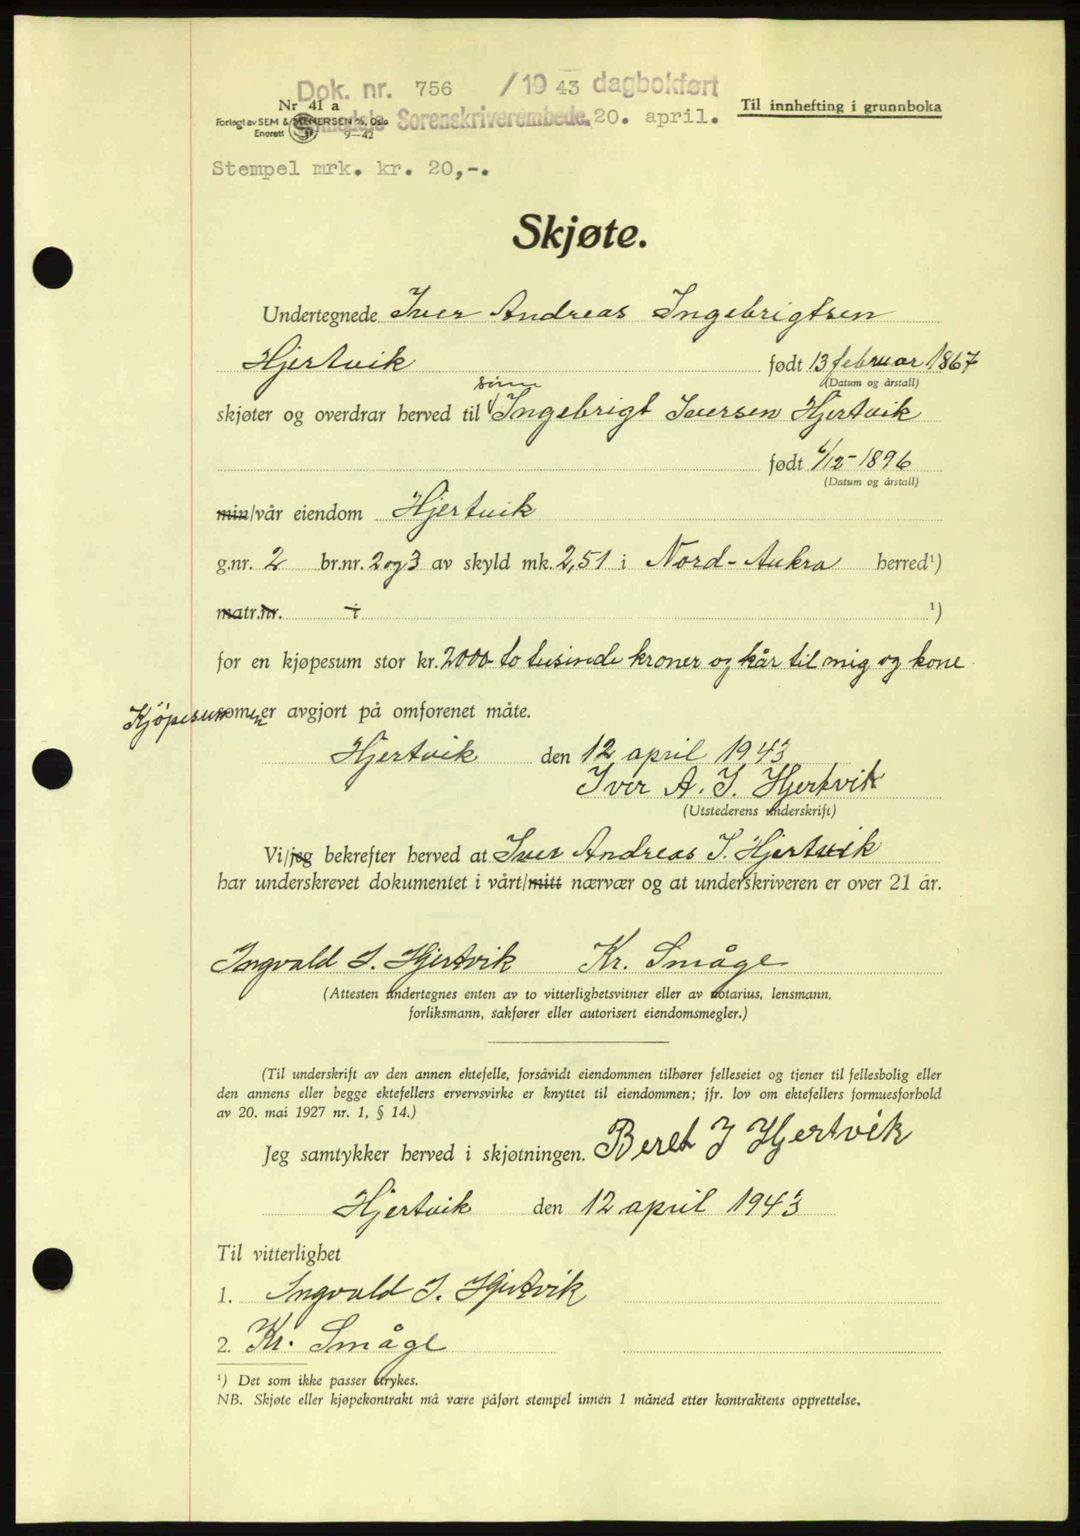 Dok. nr. 756 /1943 dagbokført
Nr 41 a
Til innhefting i grunnboka
Forlagt av SEM & STENERSEN A/S, Oslo
Sorenskriverembede. 20. april.
Enerett 9—42
Stempel mrk. kr. 20,-.
Skjøte.
Undertegnede Iver Andreas Ingebrigtsen
Hjertvik født 13 februar 1867
(Datum og årstall)
sønn
skjøter og overdrar herved til Ingebrigt Iversen Hjertvik
født 6/12-1896
(Datum og årstall)
min/vår eiendom Hjertvik
g.nr. 2 br.nr. 2 og 3 av skyld mk. 2,51 i Nord-Aukra herred¹)
matr.nr. i ¹)
for en kjøpesum stor kr. 2000 to tusinde kroner og kår til mig og kone
Kjöpesummen som er avgjort på omforenet måte.
Hjertvik den 12 april 1943
Iver A. I. Hjertvik
(Utstederens underskrift)
Vi/jeg bekrefter herved at Iver Andreas I. Hjertvik
har underskrevet dokumentet i vårt/mitt nærvær og at underskriveren er over 21 år.
Ingvald I. Hjertvik Kr. Småge
(Attesten undertegnes enten av to vitterlighetsvitner eller av notarius, lensmann,
forliksmann, sakfører eller autorisert eiendomsmegler.)
(Til underskrift av den annen ektefelle, forsåvidt eiendommen tilhører felleseiet og tjener til fellesbolig eller
den annens eller begge ektefellers ervervsvirke er knyttet til eiendommen; jfr. lov om ektefellers formuesforhold
av 20. mai 1927 nr. 1, § 14.)
Jeg samtykker herved i skjøtningen. Beret I Hjertvik
Hjertvik den 12 april 1943
Til vitterlighet
1. Ingvald I. Hjertvik
2. Kr. Småge
¹) Det som ikke passer strykes.
NB. Skjøte eller kjøpekontrakt må være påført stempel innen 1 måned etter kontraktens opprettelse.